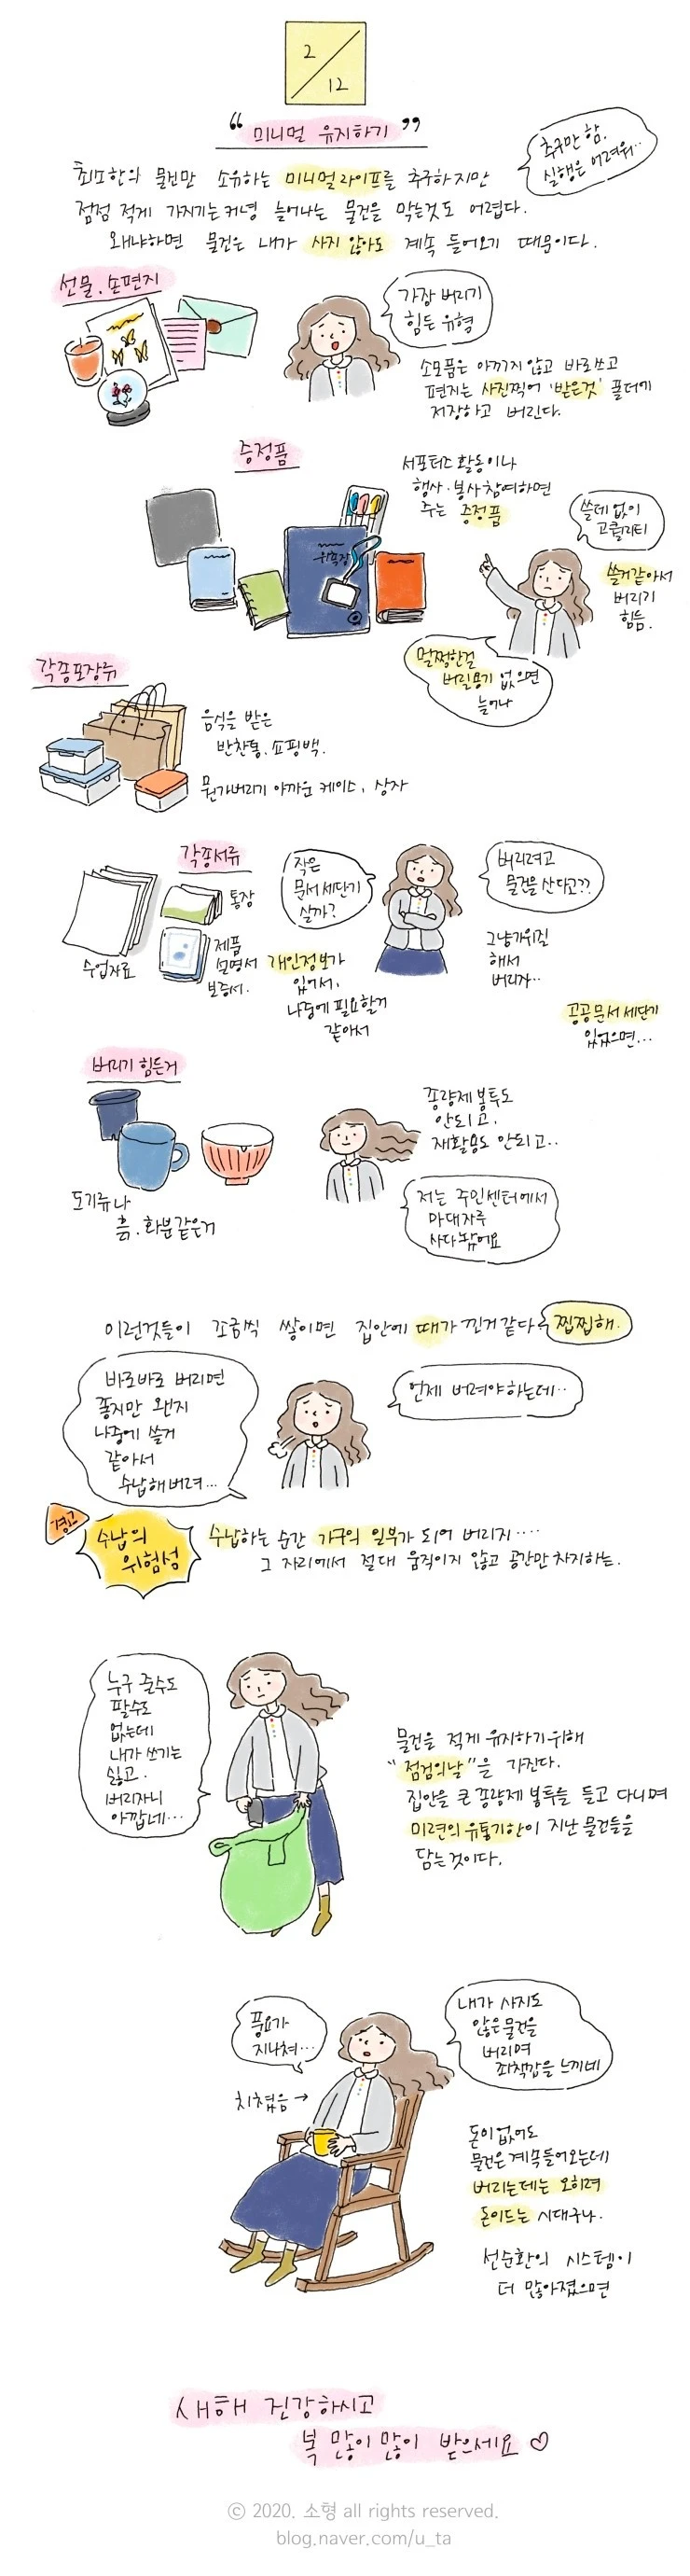 2
12
“ 미니멀 유지하기 ”
추구만 함.
실행은 어려워..
최소한의 물건만 소유하는 미니멀라이프를 추구하지만
점점 적게 가지기는커녕 늘어나는 물건을 막는것도 어렵다.
왜냐하면 물건은 내가 사지 않아도 계속 들어오기 때문이다.
선물. 손편지
가장 버리기
힘든 유형
소모품은 아끼지 않고 바로쓰고
편지는 사진찍어 '받은것' 폴더에
저장하고 버린다.
증정품
서포터스 활동이나
행사·봉사 참여하면
주는 증정품
위촉장
쓸데 없이
고퀄리티
쓸거같아서
버리기
힘듬.
멀쩡한걸
버릴용기 없으면
늘어나
각종포장류
음식을 받은
반찬통, 쇼핑백.
뭔가버리기 아까운 케이스, 상자
각종서류
통장
수업자료
제품
설명서
보증서.
작은
문서 세단기
살까?
개인정보가
있어서,
나중에 필요할거
같아서
버리려고
물건을 산다고??
그냥가위질
해서
버리자..
공공문서 세단기
있었으면...
버리기 힘든거
도기류나
흙. 화분같은거
종량제 봉투도
안되고,
재활용도 안되고..
저는 주민센터에서
마대자루
사다놨어요
이런것들이 조금씩 쌓이면 집안에 때가 낀거 같다.
찝찝해.
바로바로 버리면
좋지만 왠지
나중에 쓸거
같아서
수납해버려...
언제 버려야하는데..
경고
수납의
위험성
수납하는 순간 가구의 일부가 되어 버리지....
그 자리에서 절대 움직이지 않고 공간만 차지하는.
누구 줄수도
팔수도
없는데
내가 쓰기는
싫고.
버리자니
아깝네...
물건을 적게 유지하기위해
“점검의날”을 가진다.
집안을 큰 종량제 봉투를 들고 다니며
미련의 유통기한이 지난 물건들을
담는것이다.
풍요가
지나쳐...
지쳤음 →
내가 사지도
않은물건을
버리며
죄책감을 느끼네
돈이없어도
물건은계속들어오는데
버리는데는 오히려
돈이드는 시대구나.
선순환의 시스템이
더 많아졌으면
새해 건강하시고
복 많이많이 받으세요 ♡
© 2020. 소형 all rights reserved.
blog.naver.com/u_ta